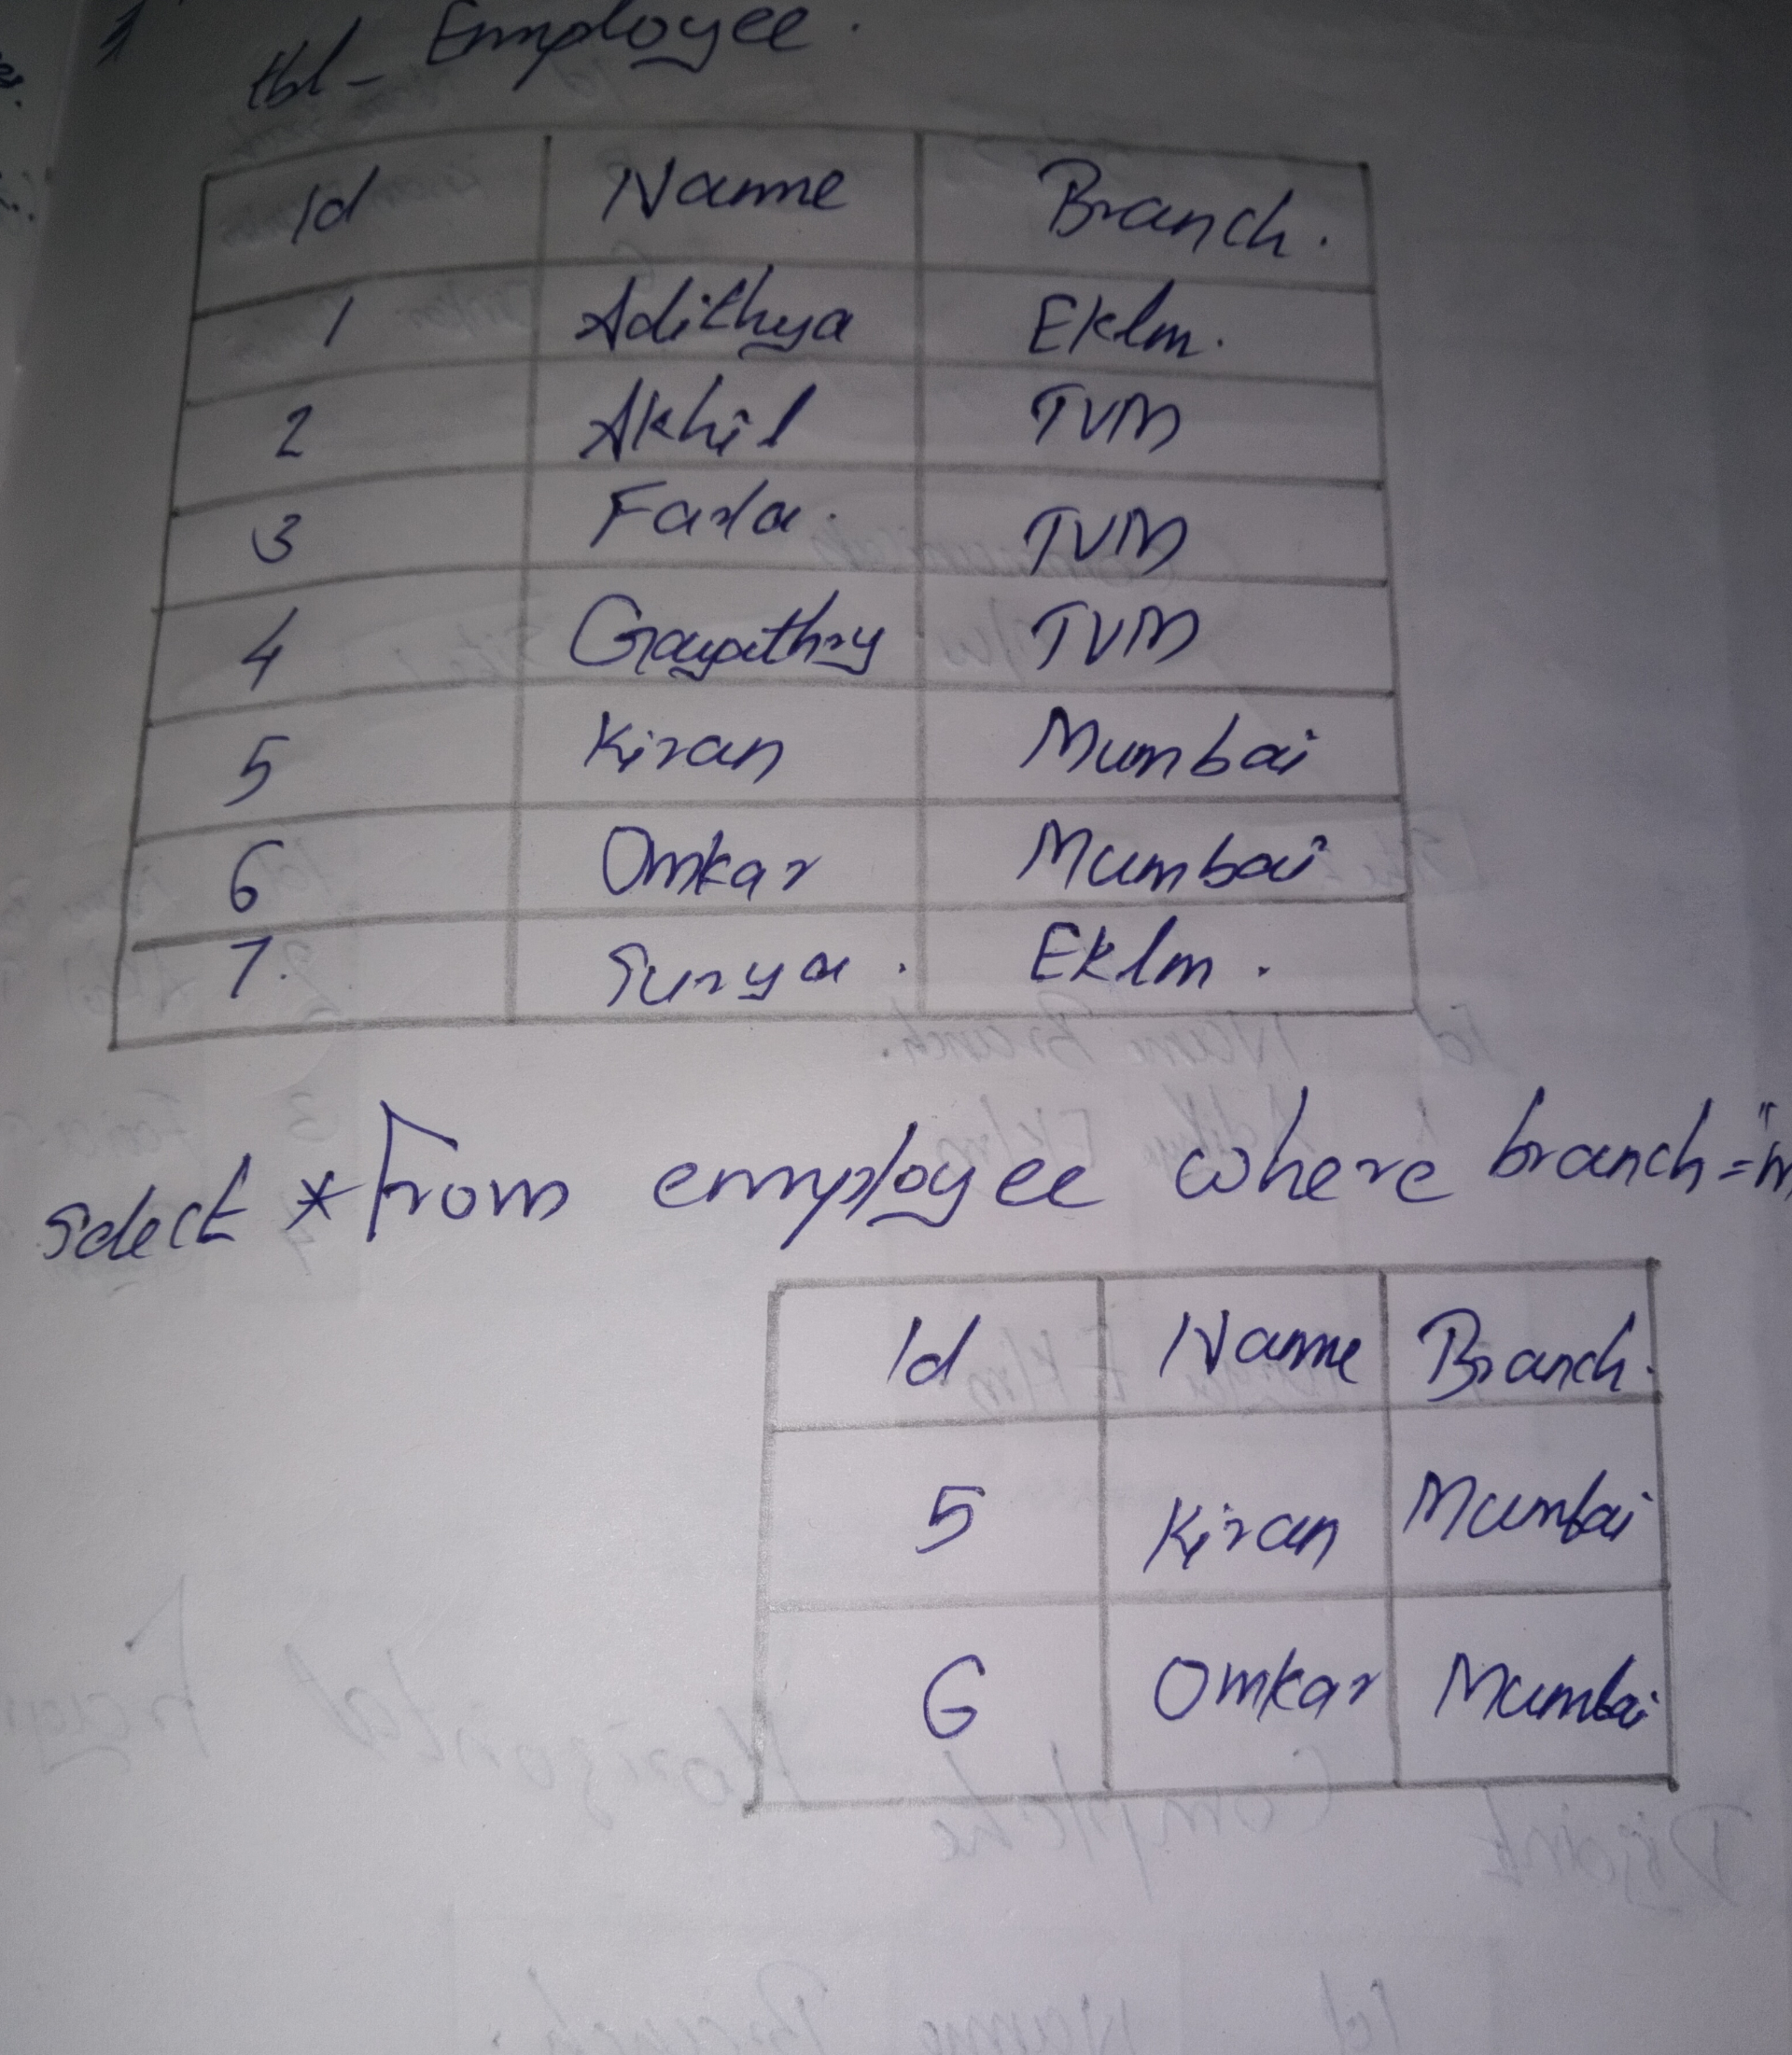 tbl- Employee.
Id Name Branch.
1 Adithya Eklm.
2 Akhil TVM
3 TVM
4 Gayathry TVM
5 Kiran Mumbai
6 Omkar Mumbai
7. Surya. Eklm.
Select * From employee where branch="m
Id Name Branch.
5 Kiran Mumbai
6 Omkar Mumbai